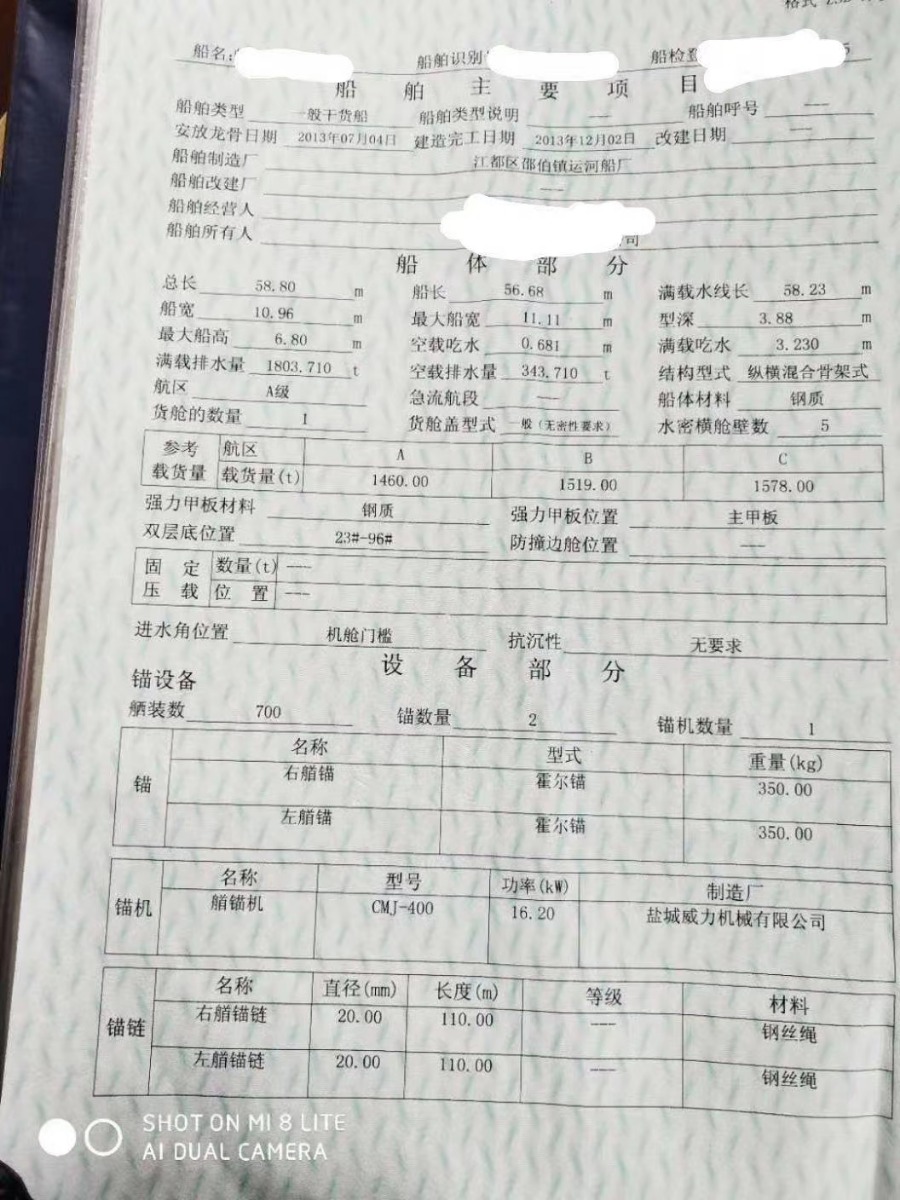 格式
船名:
船舶识别
船检登
船舶主要项目
船舶类型 一般干货船 船舶类型说明 --- 船舶呼号 ---
安放龙骨日期 2013年07月04日 建造完工日期 2013年12月02日 改建日期 ---
船舶制造厂 江都区邵伯镇运河船厂
船舶改建厂 ---
船舶经营人
船舶所有人 司
船体部分
总长 58.80 m 船长 56.68 m 满载水线长 58.23 m
船宽 10.96 m 最大船宽 11.11 m 型深 3.88 m
最大船高 6.80 m 空载吃水 0.681 m 满载吃水 3.230 m
满载排水量 1803.710 t 空载排水量 343.710 t 结构型式 纵横混合骨架式
航区 A级 急流航段 --- 船体材料 钢质
货舱的数量 1 货舱盖型式 一般(无密性要求) 水密横舱壁数 5
参考 航区 A B C
载货量 载货量(t) 1460.00 1519.00 1578.00
强力甲板材料 钢质 强力甲板位置 主甲板
双层底位置 23#-96# 防撞边舱位置 ---
固定 数量(t) ---
压载 位置 ---
进水角位置 机舱门槛 抗沉性 无要求
设备部分
锚设备
舾装数 700 锚数量 2 锚机数量 1
锚 名称 型式 重量(kg)
右艏锚 霍尔锚 350.00
左艏锚 霍尔锚 350.00
锚机 名称 型号 功率(kW) 制造厂
艏锚机 CMJ-400 16.20 盐城威力机械有限公司
锚链 名称 直径(mm) 长度(m) 等级 材料
右艏锚链 20.00 110.00 --- 钢丝绳
左艏锚链 20.00 110.00 --- 钢丝绳
SHOT ON MI 8 LITE
AI DUAL CAMERA